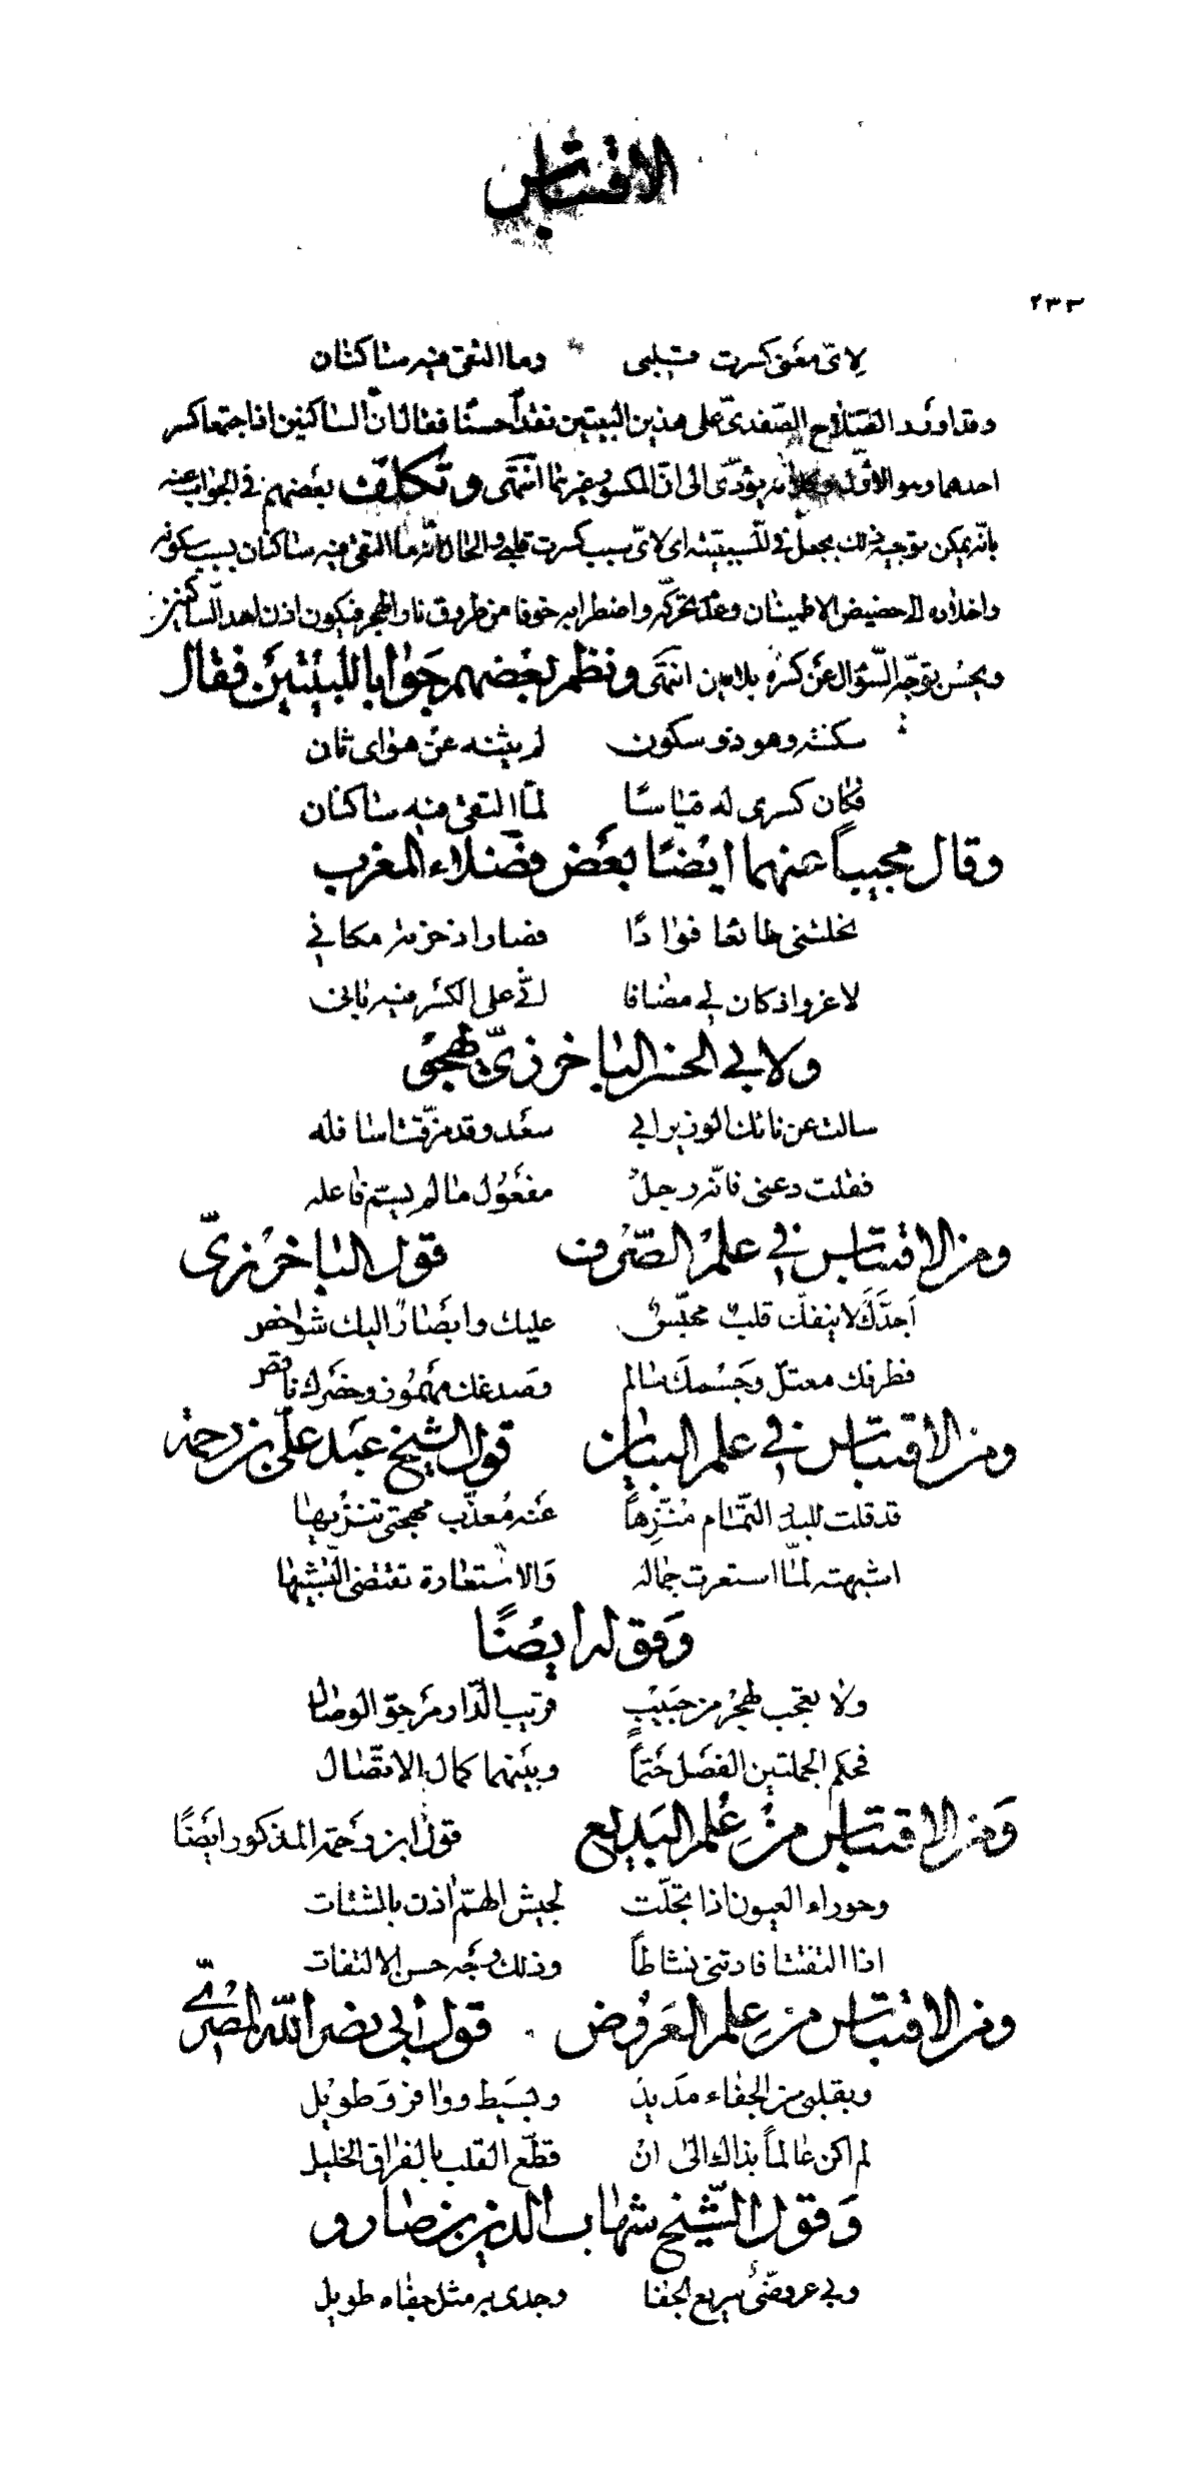 الاقتباس
٢٣٣
لاىّ معنى كسرت قلبى وما التقى فيه ساكنان
وقد اورد الصّلاح الصّفدىّ على هذين البيتين نقدًا حسنًا فقال انّ الساكنين اذا اجتمعا كسر
احدهما وهو الاوّل وكلامه يؤدّى الى انّ المكسور غيرهما انتهى وتكلّف بعضهم فى الجواب عنه
بانّه يمكن توجيه ذلك بجعل فى للسّببيّة اى لاىّ سبب كسرت قلبى والحال انّه ما التقى فيه ساكنان بسبب سكونه
واخلاده الى حضيض الاطمينان وعدم تحرّكه واضطرابه خوفا من طروق نار الهجر فيكون اذن احد السّاكنين
ويحسن توجّه السّؤال عن كسره بلا مين انتهى ونظم بعضهم جوابا للبيتين فقال
سكنته وهو ذو سكون لم يثنه عن هواى ثان
فكان كسرى له قياسًا لمّا التقى فيه ساكنان
وقال مجيباً عنهما ايضًا بعض فضلاء المغرب
نحلتنى طائعا فؤادًا فصار اذ حزته مكانى
لا غرو اذ كان لى مضافا انّى على الكسر فيه بانى
ولابى الحسن الباخرزىّ يهجو
سالت عن نائك الوزير ابى سعد وقد مزّقت اسافله
فقلت دعنى فانّه رجلٌ مفعول ما لم يسمّ فاعله
ومن الاقتباس فى علم الصّرف قول الباخرزىّ
اجدّك لا ينفكّ قلبٌ محبّسٌ عليك وابصارٌ اليك شواخص
فطرفك معتلّ وجسمك سالم وصدغك مهموز وخصرك ناقص
ومن الاقتباس فى علم البيان قول الشيخ عبد علىّ بن رحمة
قد قلت للبدر التّمام منزّهاً عنه معذّب مهجتى تنزيها
اشبهته لمّا استعرت جماله والاستعارة تقتضى التّشبيها
وقوله ايضًا
ولا تعجب لهجر من حبيب قريب الدّار مرجوّ الوصال
فحكم الجملتين الفصل حتماً وبينهما كمال الاتّصال
ومن الاقتباس من علم البديع قول ابن رحمة المذكور ايضًا
وحوراء العيون اذا تجلّت لجيش الهمّ اذن بالشتات
اذا التفتت افادتنى نشاطاً وذلك وجه حسن الالتفات
ومن الاقتباس من علم العروض قول ابى نصر الله المصرىّ
وبقلبى من الجفاء مديد وبسيط ووافر وطويل
لم اكن عالماً بذاك الى ان قطّع القلب بالفراق الخليل
وقول الشّيخ شهاب الدين بن صارو
وبى عروضىّ سريع الجفا وجدى به مثل جفاه طويل